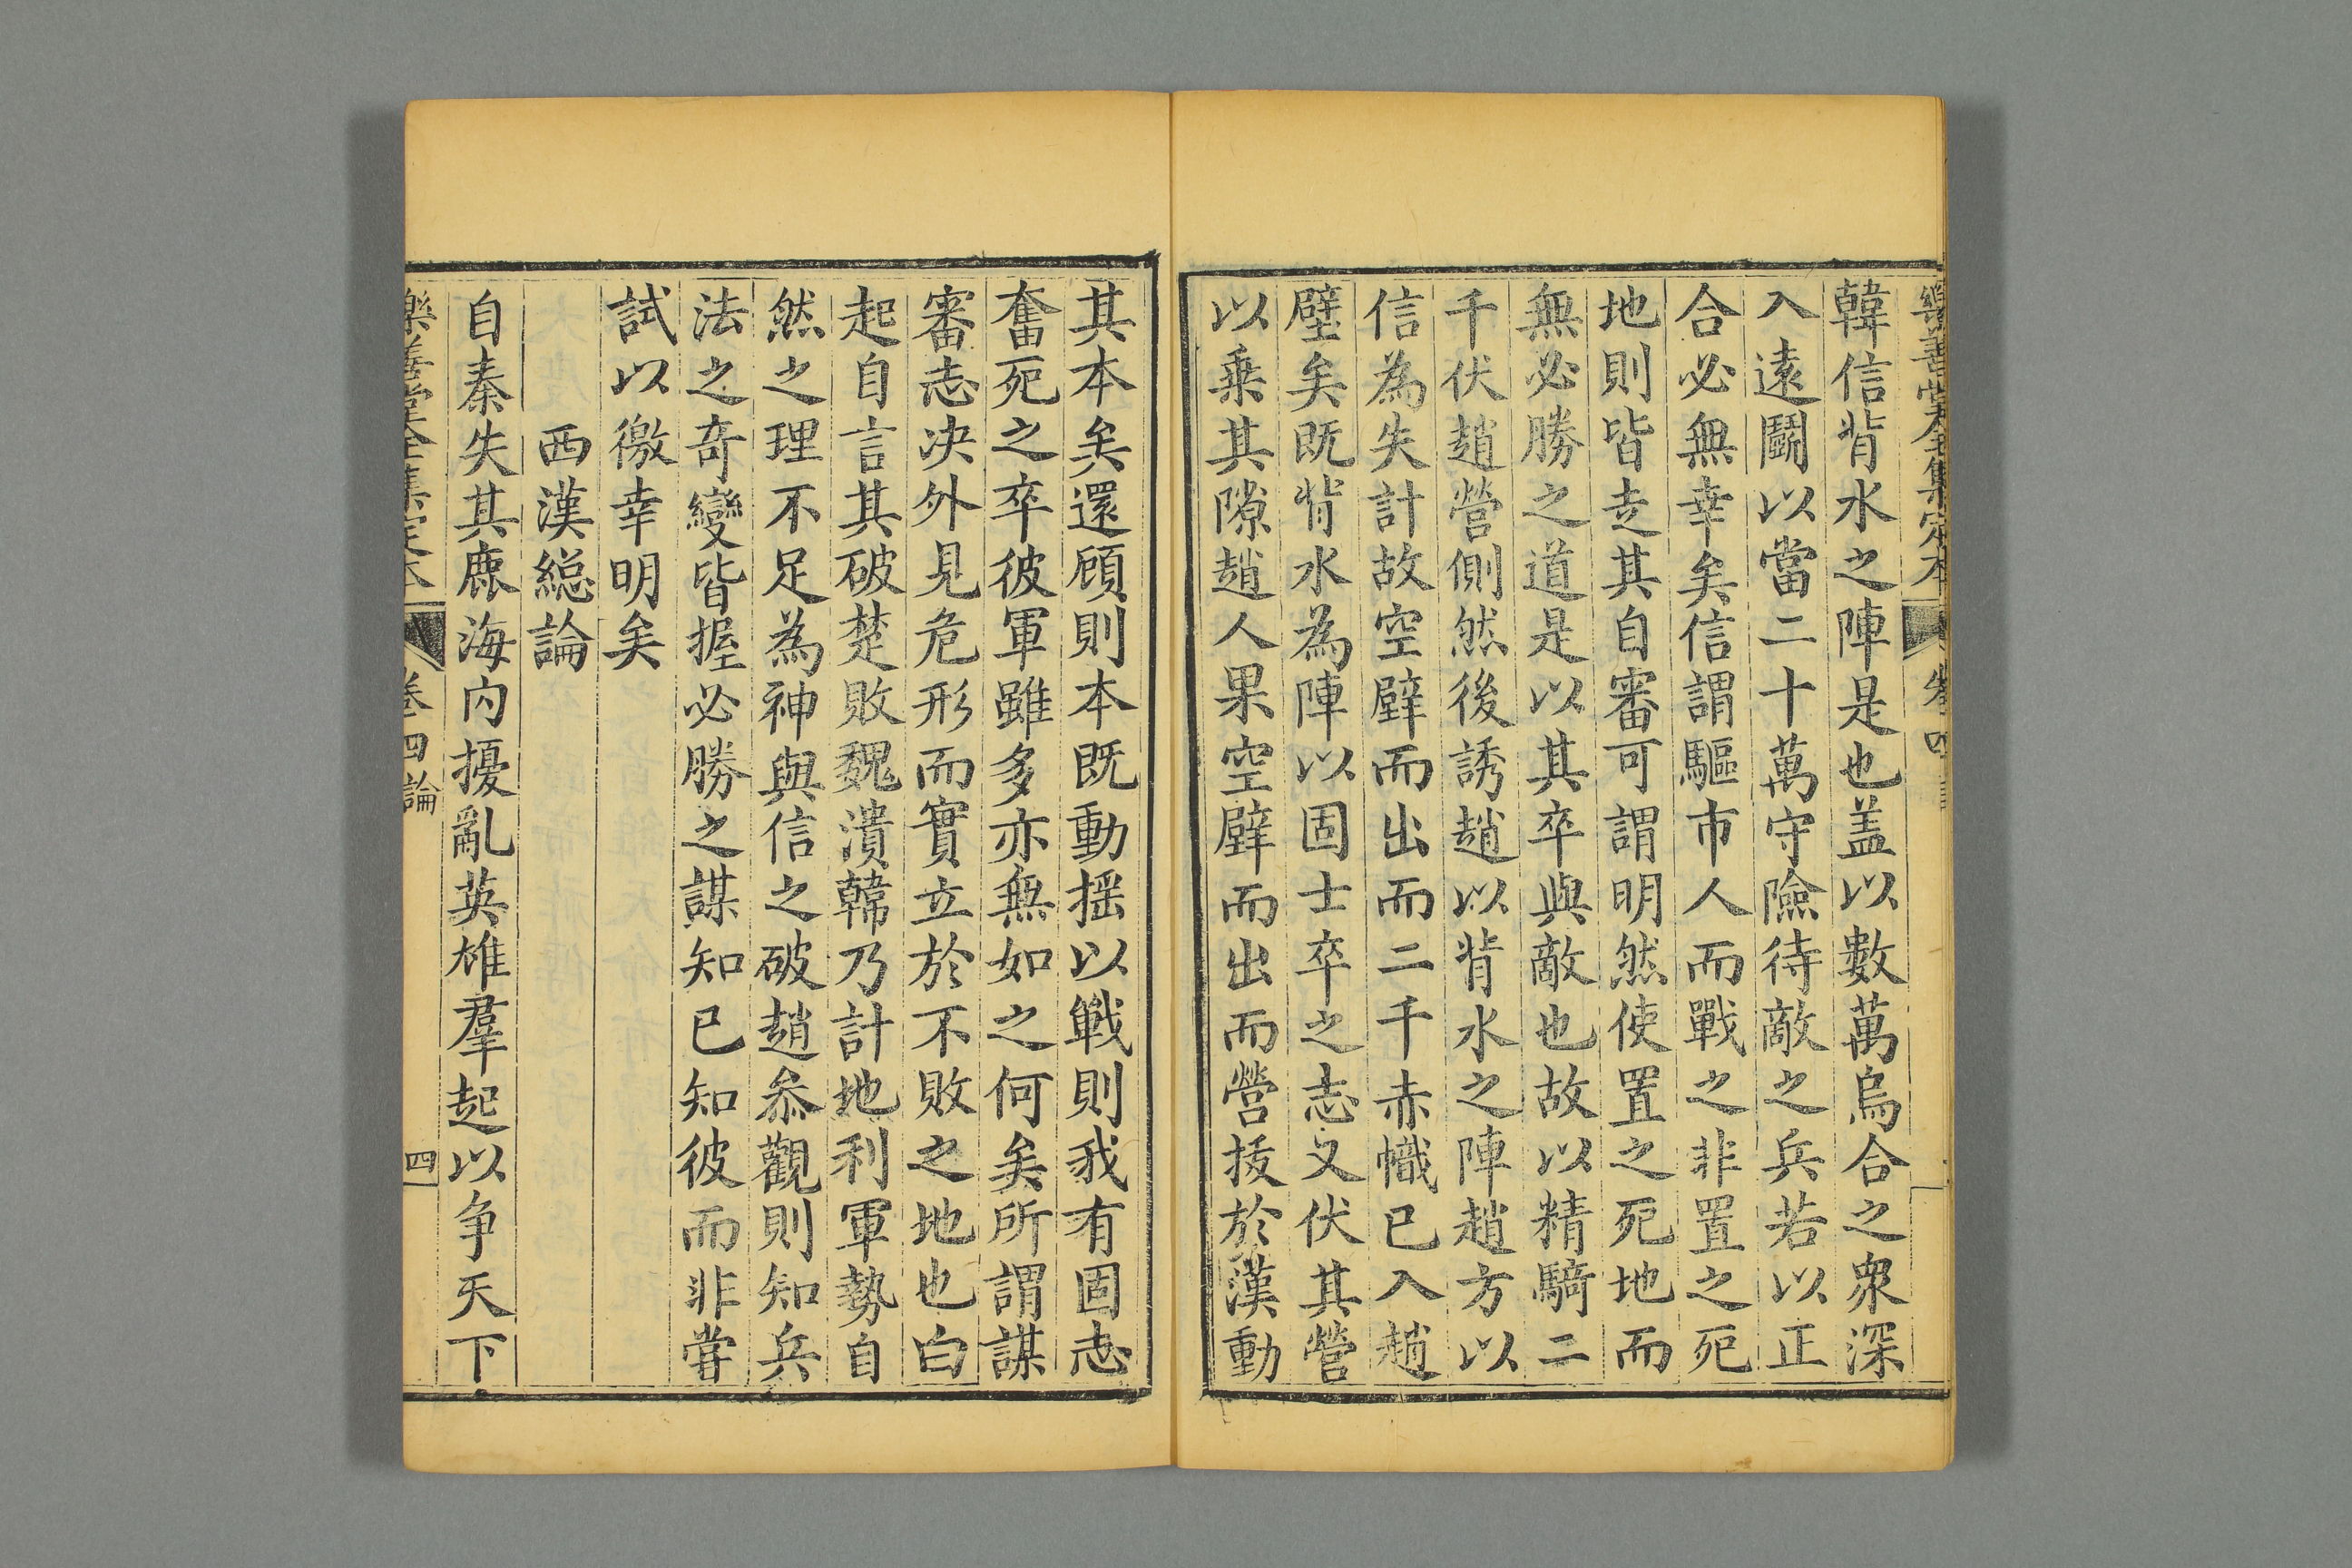 樂善堂全集定本 卷四
韓信背水之陣是也盖以數萬烏合之衆深
入遠鬭以當二十萬守險待敵之兵若以正
合必無幸矣信謂驅市人而戰之非置之死
地則皆走其自審可謂明然使置之死地而
無必勝之道是以其卒與敵也故以精騎二
千伏趙營側然後誘趙以背水之陣趙方以
信為失計故空壁而出而二千赤幟已入趙
壁矣既背水為陣以固士卒之志又伏其營
以乗其隙趙人果空壁而出而營拔於漢動
其本矣還顧則本既動揺以戰則我有固志
奮死之卒彼軍雖多亦無如之何矣所謂謀
審志决外見危形而實立於不敗之地也白
起自言其破楚敗魏潰韓乃計地利軍勢自
然之理不足為神與信之破趙叅觀則知兵
法之奇變皆握必勝之謀知已知彼而非嘗
試以徼幸明矣
西漢緫論
自秦失其鹿海内擾亂英雄羣起以争天下
樂善堂全集定本 卷四論 四